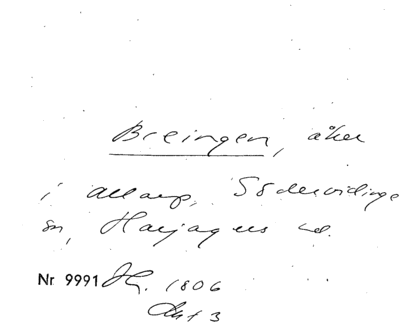 Breingen, åker
i Allarp, Södervidinge
sn, Harjagers hd.
Nr 9991 1806
Akt 3